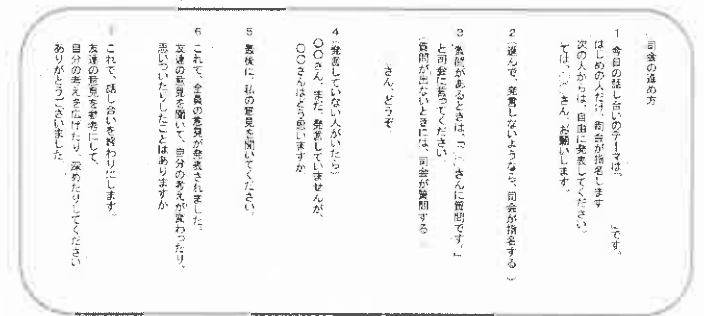 司会の進め方
1 今日の話し合いのテーマは、「　　」です。
はじめの人だけ、司会が指名します
次の人からは、自由に発表してください。
では、〇〇さん、お願いします。
2 (進んで、発言しないようなら、司会が指名する)
3 質問があるときは、「〇〇さんに質問です。」
と司会に言ってください
(質問が出ないときには、司会が質問する
さん、どうぞ
4 (発言していない人がいたら)
〇〇さん、まだ、発言していませんが、
〇〇さんはどう思いますか
5 最後に、私の意見を聞いてください。
6 これで、全員の意見が発表されました。
友達の意見を聞いて、自分の考えが変わったり、
思いついたりしたことはありますか
これで、話し合いを終わりにします。
友達の意見を参考にして、
自分の考えを広げたり、深めたりしてください
ありがとうございました